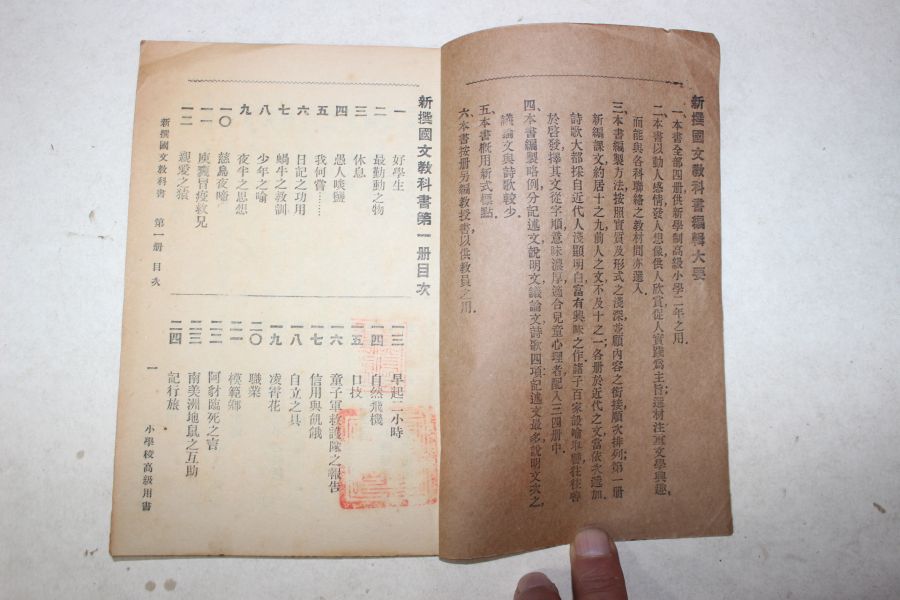 新撰國文教科書編輯大要
一、本書全部四册供新學制高級小學二年之用
二、本書以動人感情發人想像供人欣賞促人實踐爲主旨選材注重文學興趣、
而能與各科聯絡之教材間亦選入
三、本書編製方法按照實質及形式之淺深並顧內容之銜接順次排列第一册
新編課文約居十之九前人之文不及十之一；各册於近代之文當依次遞加
詩歌大都採自近代人淺顯明白富有興味之作諸子百家設喻
於啓發擇其文從字順意味濃厚適合兒童心理者配入三四册中
四、本書編製略例分記述文說明文議論文詩歌四項；記述文最多說明文次之、
議論文與詩歌較少
五、本書概用新式標點
六、本書按册另編教授書以供教員之用
新撰國文教科書第一册目次
一 好學生
二 最勤動之物
三 休息
四 愚人啖鹽
五 我何嘗……
六 日記之功用
七 蝸牛之教訓
八 少年之喻
九 夜半之思想
一〇 慈烏夜啼
一一 庾袞冒疫救兄
一二 親愛之猿
一三 早起二小時
一四 自然飛機
一五 口技
一六 童子軍救護隊之報告
一七 信用與飢餓
一八 自立之具
一九 凌霄花
二〇 職業
二一 模範鄉
二二 阿豺臨死之言
二三 南美洲地鼠之互助
二四 記行旅
新撰國文教科書 第一册 目次
一 小學校高級用書